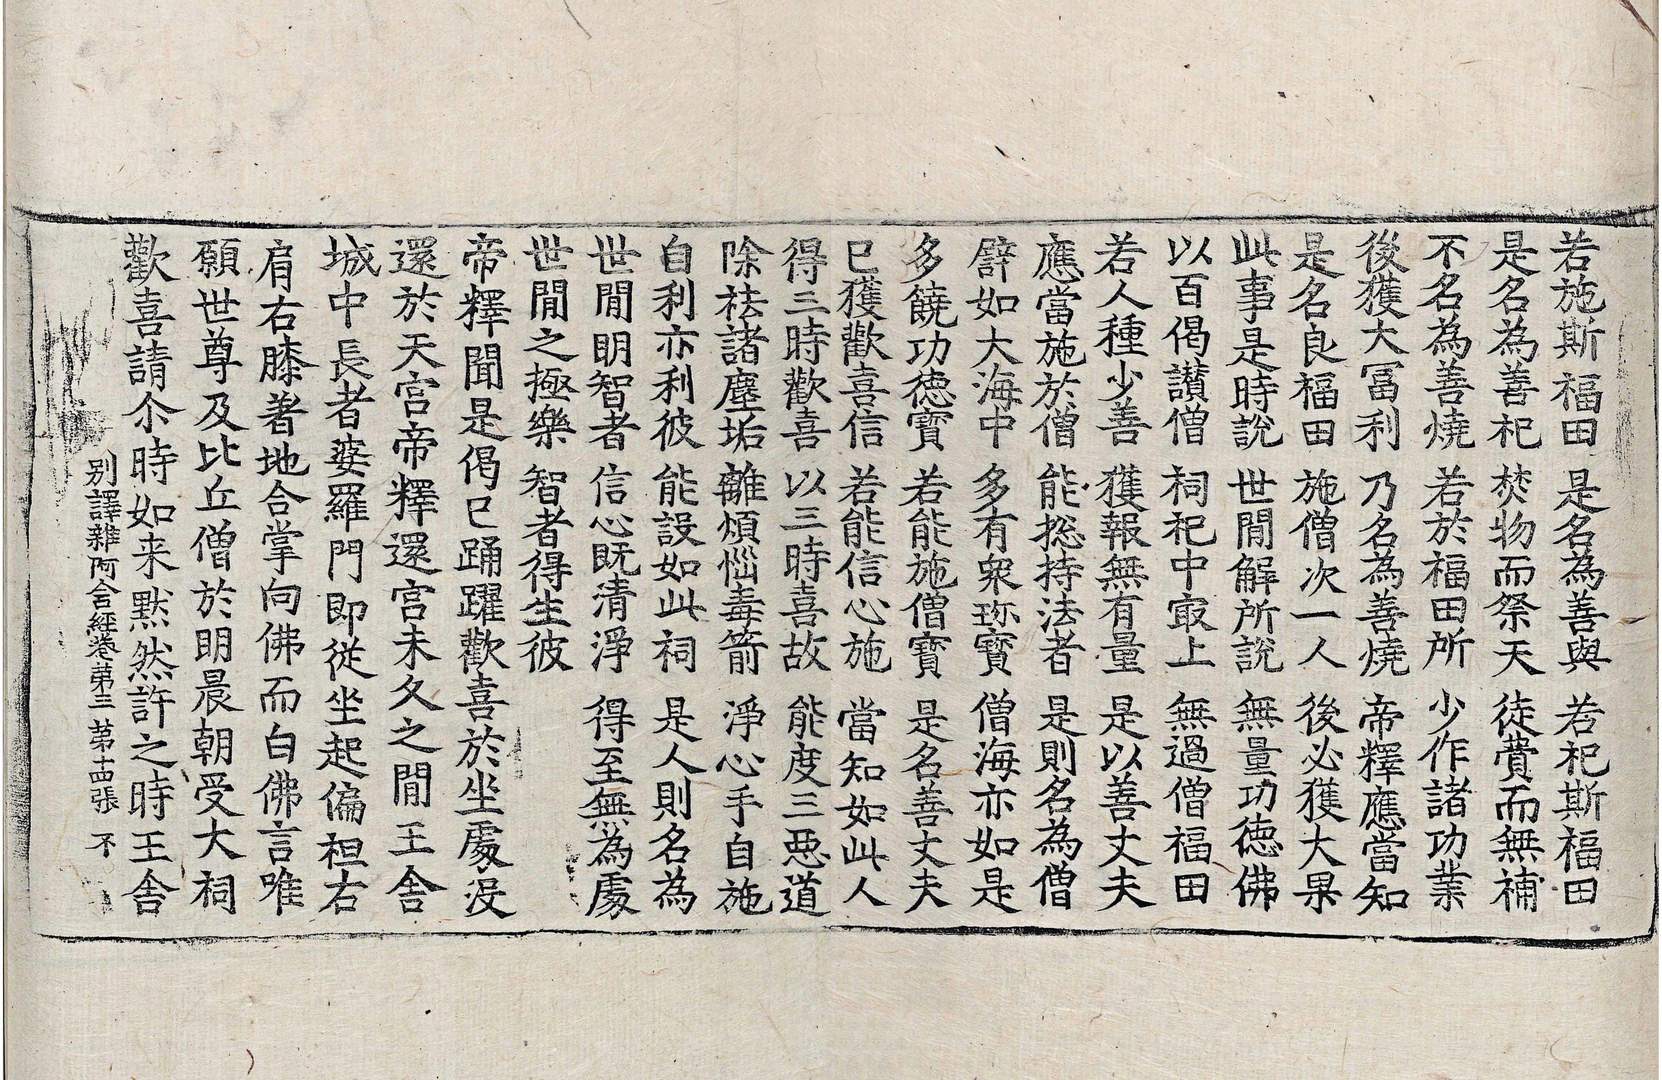 若施斯福田 是名為善與 若祀斯福田
是名為善祀 焚物而祭天 徒費而無補
不名為善燒 若於福田所 少作諸功業
後獲大冨利 乃名為善燒 帝釋應當知
是名良福田 施僧次一人 後必獲大果
此事是時說 世閒解所說 無量功德佛
以百偈讃僧 祠祀中㝡上 無過僧福田
若人種少善 獲報無有量 是以善丈夫
應當施於僧 能捴持法者 是則名為僧
譬如大海中 多有衆珎寶 僧海亦如是
多饒功德寶 若能施僧寶 是名善丈夫
已獲歡喜信 若能信心施 當知如此人
得三時歡喜 以三時喜故 能度三惡道
除袪諸塵垢 離煩惱毒箭 淨心手自施
自利亦利彼 能設如此祠 是人則名為
世閒明智者 信心既清淨 得至無為處
世閒之極樂 智者得生彼
帝釋聞是偈已踊躍歡喜於坐處沒
還於天宮帝釋還宮未久之閒王舍
城中長者婆羅門即從坐起偏袒右
肩右膝著地合掌向佛而白佛言唯
願世尊及比丘僧於明晨朝受大祠
歡喜請尒時如来默然許之時王舍
別譯雜阿含經卷第三 第十四張 不